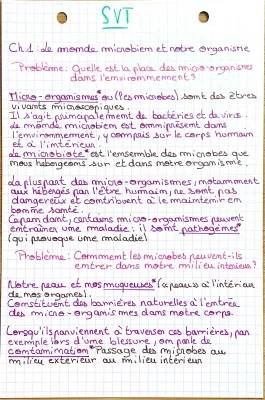 SVT
Ch 1 : Le monde microbien et notre organisme
Problème : Quelle est la place des micro-organismes
dans l'environnement ?
Micro-organismes* ou (les microbes) sont des êtres
vivants microscopiques.
Il s'agit principalement de bactéries et de virus.
Le monde microbien est omniprésent dans
l'environnement, y compris sur le corps humain
et à l'intérieur.
Le microbiote* est l'ensemble des microbes que
nous hébergeons sur et dans notre organisme.
La plupart des micro-organismes, notamment
ceux hébergés par l'être humain, ne sont pas
dangereux et contribuent à le maintenir en
bonne santé.
Cependant, certains micro-organismes peuvent
entraîner une maladie : il sont pathogènes*
(qui provoque une maladie)
Problème : Comment les microbes peuvent-ils
entrer dans notre milieu intérieur ?
Notre peau et nos muqueuses* (la peau à l'intérieur
de nos organes).
Constituent des barrières naturelles à l'entrée
des micro-organismes dans notre corps.
Lorsqu'ils parviennent à traverser ces barrières, par
exemple lors d'une blessure, on parle de
contamination* Passage des microbes au
milieu extérieur au milieu intérieur